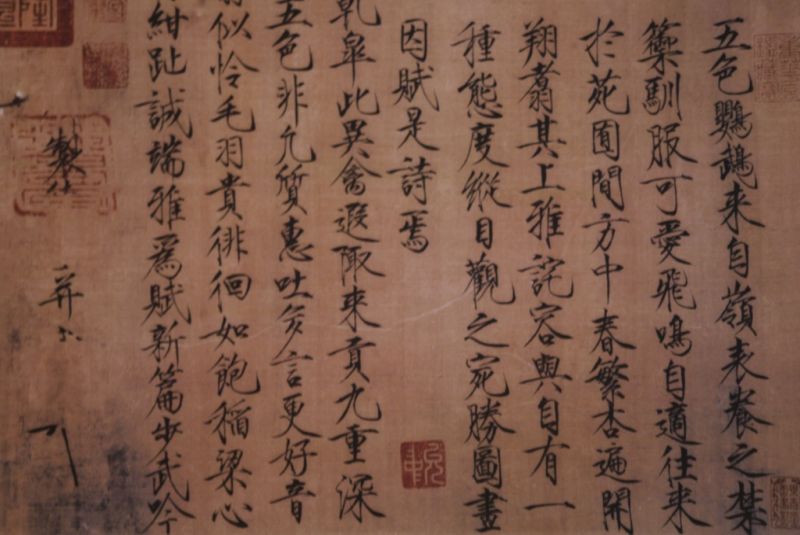 五色鸚鵡来自嶺表養之禁
籞馴服可愛飛鳴自適往来
於苑囿間方中春繁杏遍開
翔翥其上雅詫容與自有一
種態度縱目觀之宛勝圖畫
因賦是詩焉
乾皐此異禽遐陬来貢九重深
五色非凡質惠吐多言更好音
似怜毛羽貴徘徊如飽稻粱心
紺趾誠端雅爲賦新篇步武吟
製
并